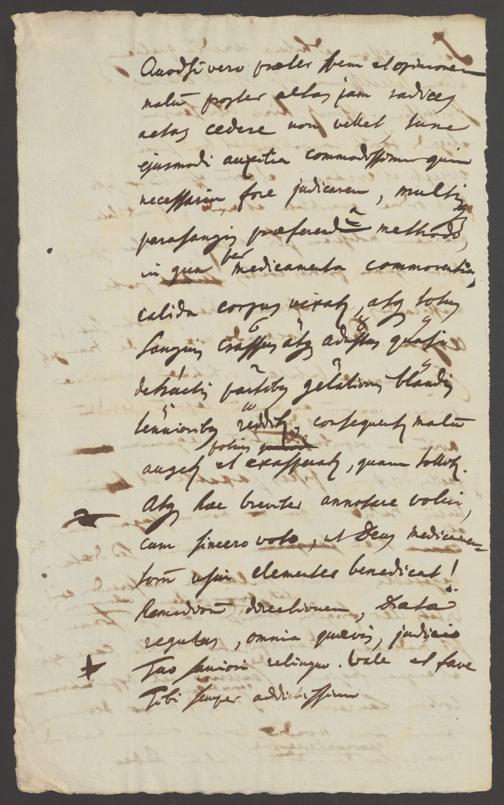 Quodsi vero præter spem et opinionem
malū propter ætas jam radices
actas cedere non vellet, tunc
ejusmodi auxilia commodissima quin
necessaria fore judicarem, multis
parasangis præferendā methodo,
in qua per medicamenta commoventia,
calida corpus vexatʒ, atqʒ totus
Sanguis crassus atqʒ adustus quasi
detractis partibʒ gelatinosis blandis
tenuioribʒ redditʒ, consequentʒ malū
potius
augetʒ et exasperatʒ, quam tollitʒ.
Atqʒ hæc breviter annotare volui,
cum sincero voto, ut Deus medicamen-
torū usui clementer benedicat!
Remediorū directionem, Diætæ
regulas, omnia quævis, judicio
Tuo saniori relinquo. Vale et fave
Tibi semper addictissimo